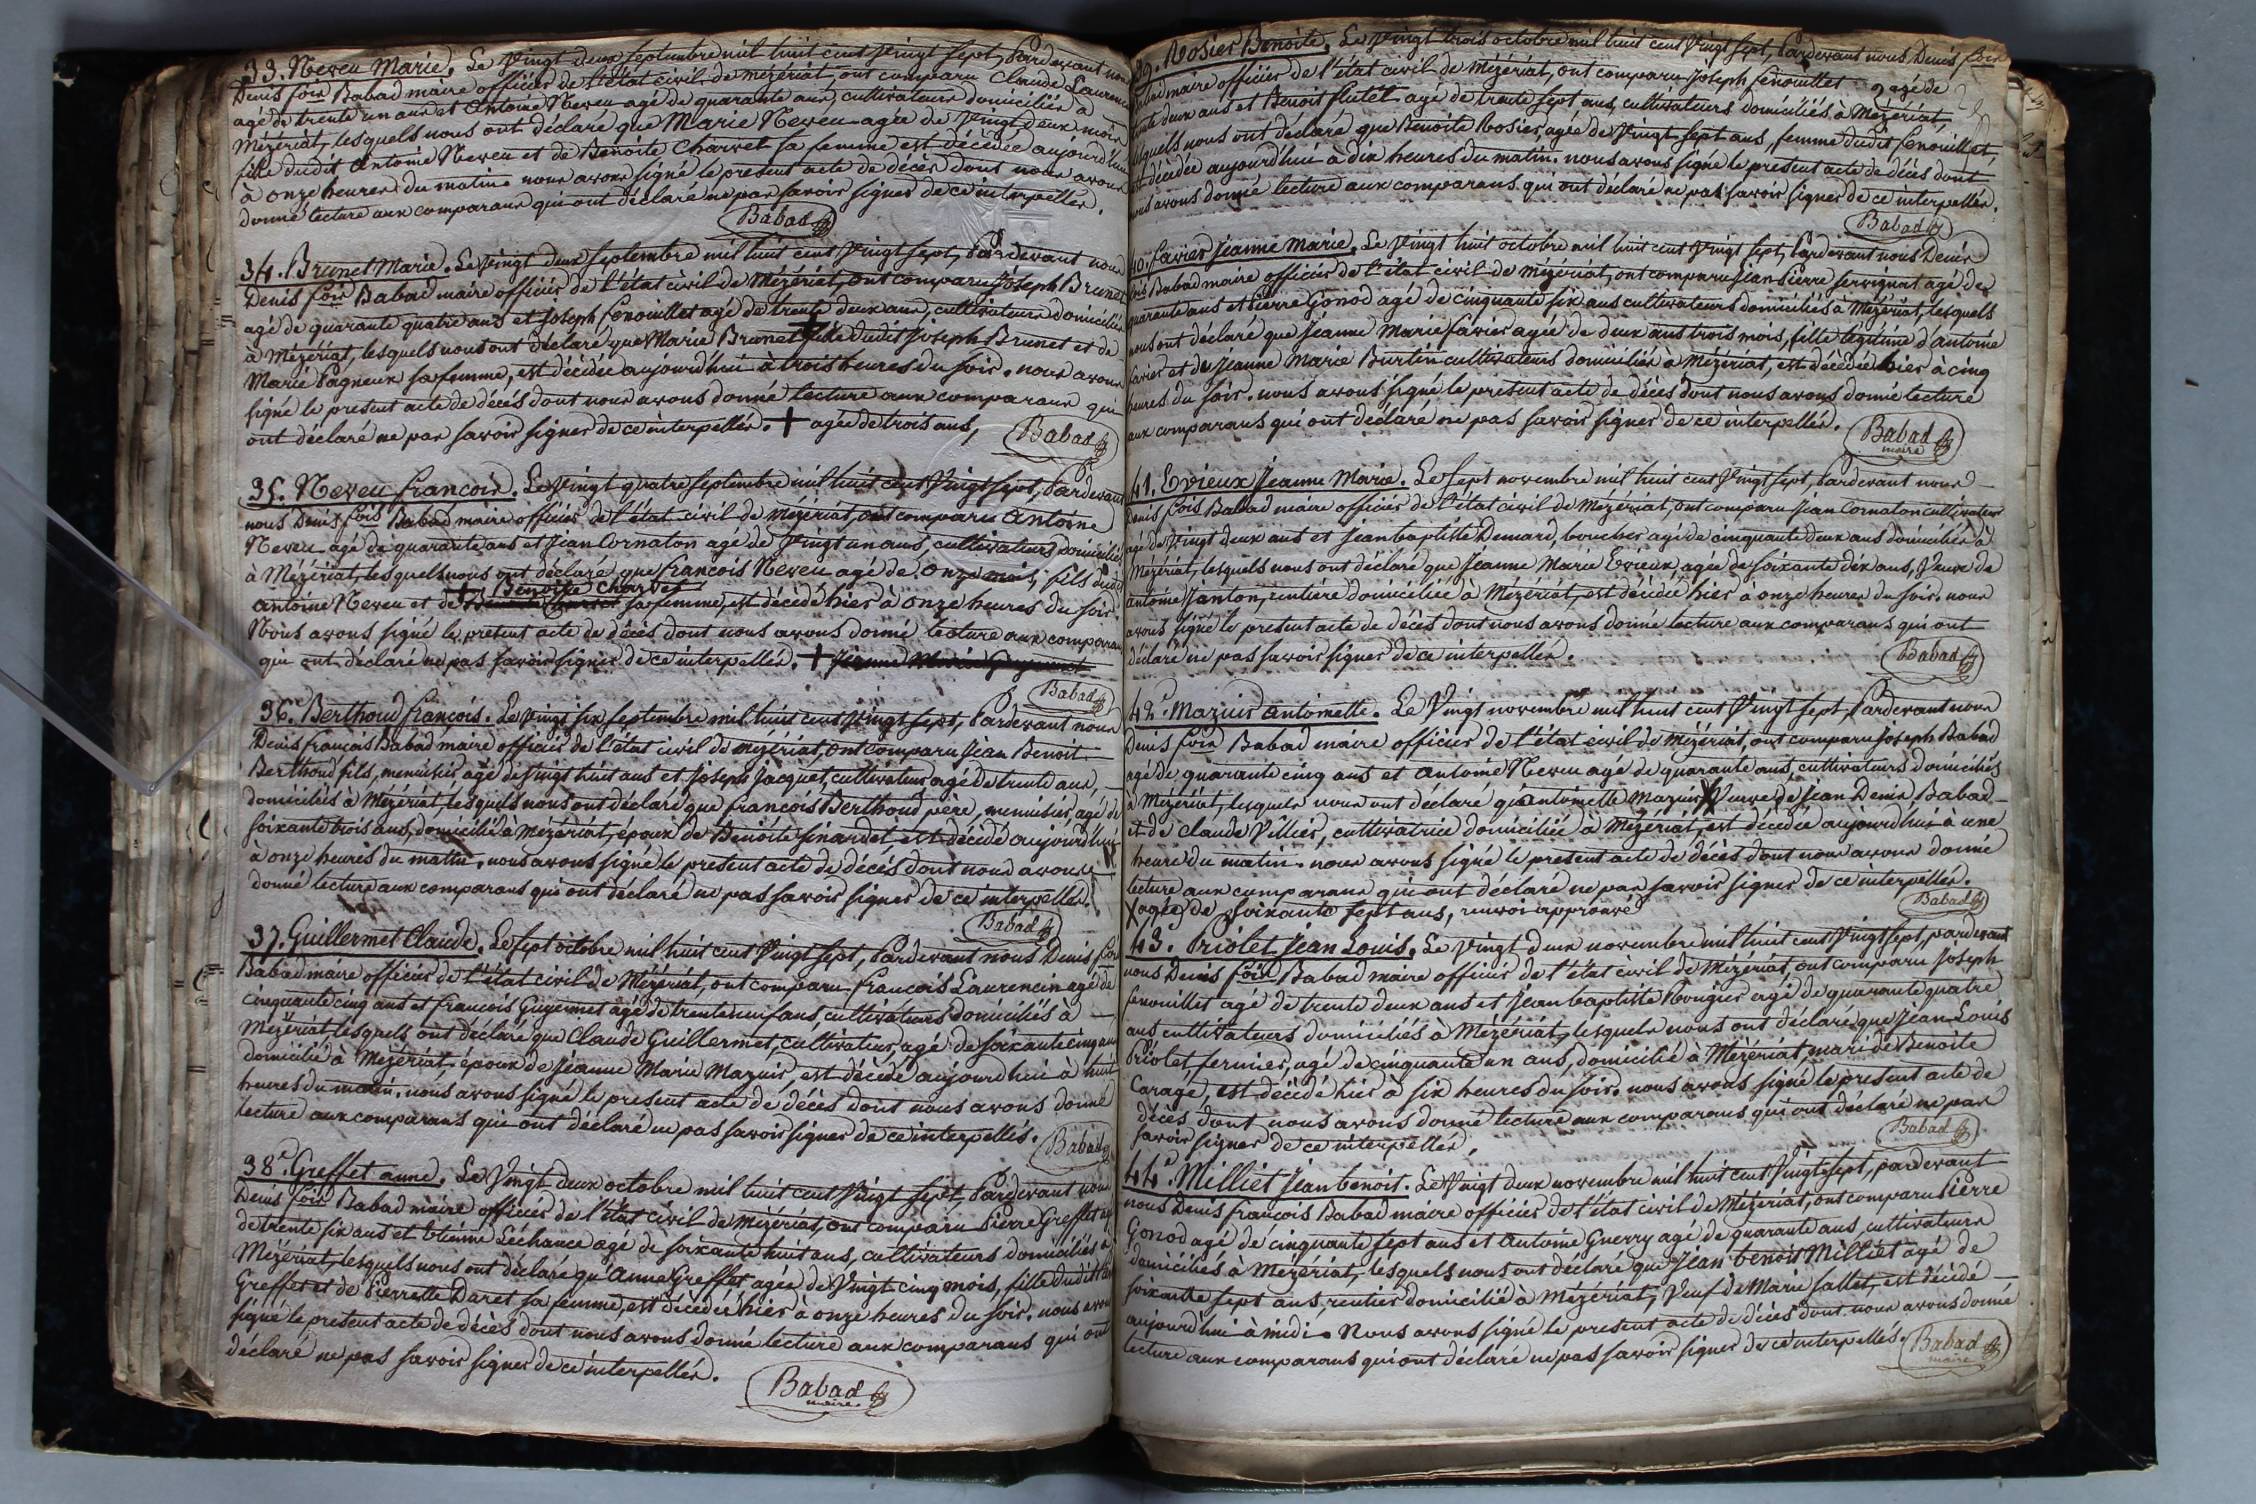 33. Neveu Marie. Le Vingt deux septembre mil huit cent Vingt sept, Pardevant nous
Denis fois Babad maire officier de l'état civil de mézériat, ont comparu Claude Laurenc
agé de trente un ans et antoine Neveu agé de quarante ans, cultivateurs domiciliés à
Mézériat, lesquels nous ont déclaré que Marie Neveu agée de Vingt deux mois
fille dudit Antoine Neveu et de Benoite Charvet sa femme est décédée aujourd'hui
à onze heures du matin nous avons signé le present acte de décès dont nous avons
donné lecture aux comparans qui ont déclaré ne pas savoir signer de ce interpellés.
Babad
34. Brunet Marie. Le Vingt deux septembre mil huit cent Vingt sept, Pardevant nous
Denis fois Babad maire officier de l'état civil de Mézériat, ont comparu Joseph Brunet
agé de quarante quatre ans et Joseph fenouillet agé de trente deux ans, cultivateurs domiciliés
à Mézériat, lesquels nous ont déclaré que Marie Brunet + fille dudit Joseph Brunet et de
Marie Pagneux sa femme, est décédée aujourd'hui à trois heures du soir. nous avons
signé le present acte de décès dont nous avons donné lecture aux comparans qui
ont déclaré ne pas savoir signer de ce interpellés. + agée de trois ans,
Babad
35. Neveu françois. Le Vingt quatre septembre mil huit cent Vingt sept, Pardevant
nous Denis fois Babad maire officier de l'état civil de mézériat, ont comparu Antoine
Neveu agé de quarante ans et Jean Cornaton agé de Vingt un ans, cultivateurs domiciliés
à Mézériat, lesquels nous ont déclaré que françois Neveu agé de onze mois, fils dudit
Benoite Charvet
antoine Neveu et de sa femme, est décédé hier à onze heures du soir.
Nous avons signé le present acte de décès dont nous avons donné lecture aux comparans
qui ont déclaré ne pas savoir signer de ce interpellés. +
Babad
36.e Berthoud françois. Le Vingt six septembre mil huit cent Vingt sept, Pardevant nous
Denis françois Babad maire officier de l'état civil de mézériat, ont comparu Jean Benoit
Berthoud fils, menuisier agé de Vingt huit ans et Joseph Jacquet, cultivateur agé de trente ans,
domiciliés à Mézériat, lesquels nous ont déclaré que françois Berthoud père, menuisier, agé de
soixante trois ans, domicilié à mézériat, époux de Benoite Sinardet est décédé aujourd'hui
à onze heures du matin. nous avons signé le present acte de décès dont nous avons
donné lecture aux comparans qui ont déclaré ne pas savoir signer de ce interpellés.
Babad
37. Guillermet Claude. Le sept octobre mil huit cent Vingt sept, Pardevant nous Denis fois
Babad maire officier de l'état civil de Mézériat, ont comparu françois Laurencin agé de
cinquante cinq ans et françois Guyennet agé de trente neuf ans, cultivateurs domiciliés à
Mézériat lesquels ont déclaré que Claude Guillermet, cultivateur, agé de soixante cinq ans
domicilié à Mézériat, époux de Jeanne Marie Mazuir, est décédé aujourd'hui à huit
heures du matin. nous avons signé le present acte de décès dont nous avons donné
lecture aux comparans qui ont déclaré ne pas savoir signer de ce interpellés.
Babad
38.e Greffet anne. Le Vingt deux octobre mil huit cent Vingt sept, Pardevant nous
Denis fois Babad maire officier de l'état civil de mézériat, ont comparu Pierre Greffet agé
de trente six ans et Etienne Léchance agé de soixante huit ans, cultivateurs domiciliés à
Mézériat, lesquels nous ont déclaré qu'Anne Greffet agée de Vingt cinq mois, fille dudit
Greffet et de Pierrette Daret sa femme, est décédée hier à onze heures du soir. nous avons
signé le present acte de décès dont nous avons donné lecture aux comparans qui ont
déclaré ne pas savoir signer de ce interpellés.
Babad
maire
39. Rosier Benoite. Le Vingt trois octobre mil huit cent Vingt sept, Pardevant nous Denis fois
Babad maire officier de l'état civil de Mézériat, ont comparu Joseph fenouillet agé de
trente deux ans et Benoit flutet agé de trente sept ans, cultivateurs domiciliés à Mézériat,
lesquels nous ont déclaré que Benoite Rosier agée de Vingt sept ans, femme dudit fenouillet,
est décédée aujourd'hui à dix heures du matin. nous avons signé le present acte de décès dont
nous avons donné lecture aux comparans qui ont déclaré ne pas savoir signer de ce interpellés.
Babad
40. favier Jeanne Marie. Le Vingt huit octobre mil huit cent Vingt sept, Pardevant nous Denis
fois Babad maire officier de l'état civil de mézériat, ont comparu Jean Pierre Servignat agé de
quarante ans et Pierre Gonod agé de cinquante six ans cultivateurs domiciliés à Mézériat, lesquels
nous ont déclaré que Jeanne Marie favier agée de deux ans trois mois, fille légitime d'antoine
favier et de Jeanne Marie Burtin cultivateurs domiciliés à Mézériat, est décédée hier à cinq
heures du soir. nous avons signé le present acte de décès dont nous avons donné lecture
aux comparans qui ont déclaré ne pas savoir signer de ce interpellés.
Babad
maire
41. Evieux Jeanne Marie. Le sept novembre mil huit cent Vingt sept, Pardevant nous
Denis fois Babad maire officier de l'état civil de Mézériat, ont comparu Jean Cornaton cultivateur
agé de Vingt deux ans et Jean baptiste Demard, boucher agé de cinquante deux ans domiciliés à
Mézériat, lesquels nous ont déclaré que Jeanne Marie Evieux agée de soixante dix ans, Veuve de
antoine Janton, rentière domiciliée à Mézériat, est décédée hier à onze heures du soir. nous
avons signé le present acte de décès dont nous avons donné lecture aux comparans qui ont
déclaré ne pas savoir signer de ce interpellés.
Babad
42.e Mazuir antoinette. Le Vingt novembre mil huit cent Vingt sept, Pardevant nous
Denis fois Babad maire officier de l'état civil de Mézériat, ont comparu Joseph Babad
agé de quarante cinq ans et antoine Neveu agé de quarante ans, cultivateurs domiciliés
à Mézériat, lesquels nous ont déclaré qu'antoinette Mazuir X Veuve de Jean Denis Babad
et de Claude Villier, cultivatrice domiciliée à Mézériat, est décédée aujourd'hui à une
heure du matin. nous avons signé le present acte de décès dont nous avons donné
lecture aux comparans qui ont déclaré ne pas savoir signer de ce interpellés.
Babad
X agée de soixante sept ans, renvoi approuvé
43. Priolet Jean Louis. Le Vingt deux novembre mil huit cent Vingt sept, pardevant
nous Denis fois Babad maire officier de l'état civil de Mézériat, ont comparu Joseph
fenouillet agé de trente deux ans et Jean baptiste Rougier agé de quarante quatre
ans cultivateurs domiciliés à Mézériat, lesquels nous ont déclaré que Jean Louis
Priolet, fermier, agé de cinquante un ans, domicilié à Mézériat, mari de Benoite
Carage, est décédé hier à six heures du soir. nous avons signé le present acte de
décès dont nous avons donné lecture aux comparans qui ont déclaré ne pas
savoir signer de ce interpellés.
Babad
44.e Milliet Jean benoit. Le Vingt deux novembre mil huit cent Vingt sept, pardevant
nous Denis françois Babad maire officier de l'état civil de Mézériat, ont comparu Pierre
Gonod agé de cinquante sept ans et Antoine Guerry agé de quarante ans, cultivateurs
domiciliés à Mézériat, lesquels nous ont déclaré que Jean benoit Milliet agé de
soixante sept ans, rentier domicilié à Mézériat, Veuf de Marie fallet, est décédé
aujourd'hui à midi. Nous avons signé le present acte de décès dont nous avons donné
lecture aux comparans qui ont déclaré ne pas savoir signer de ce interpellés.
Babad
maire